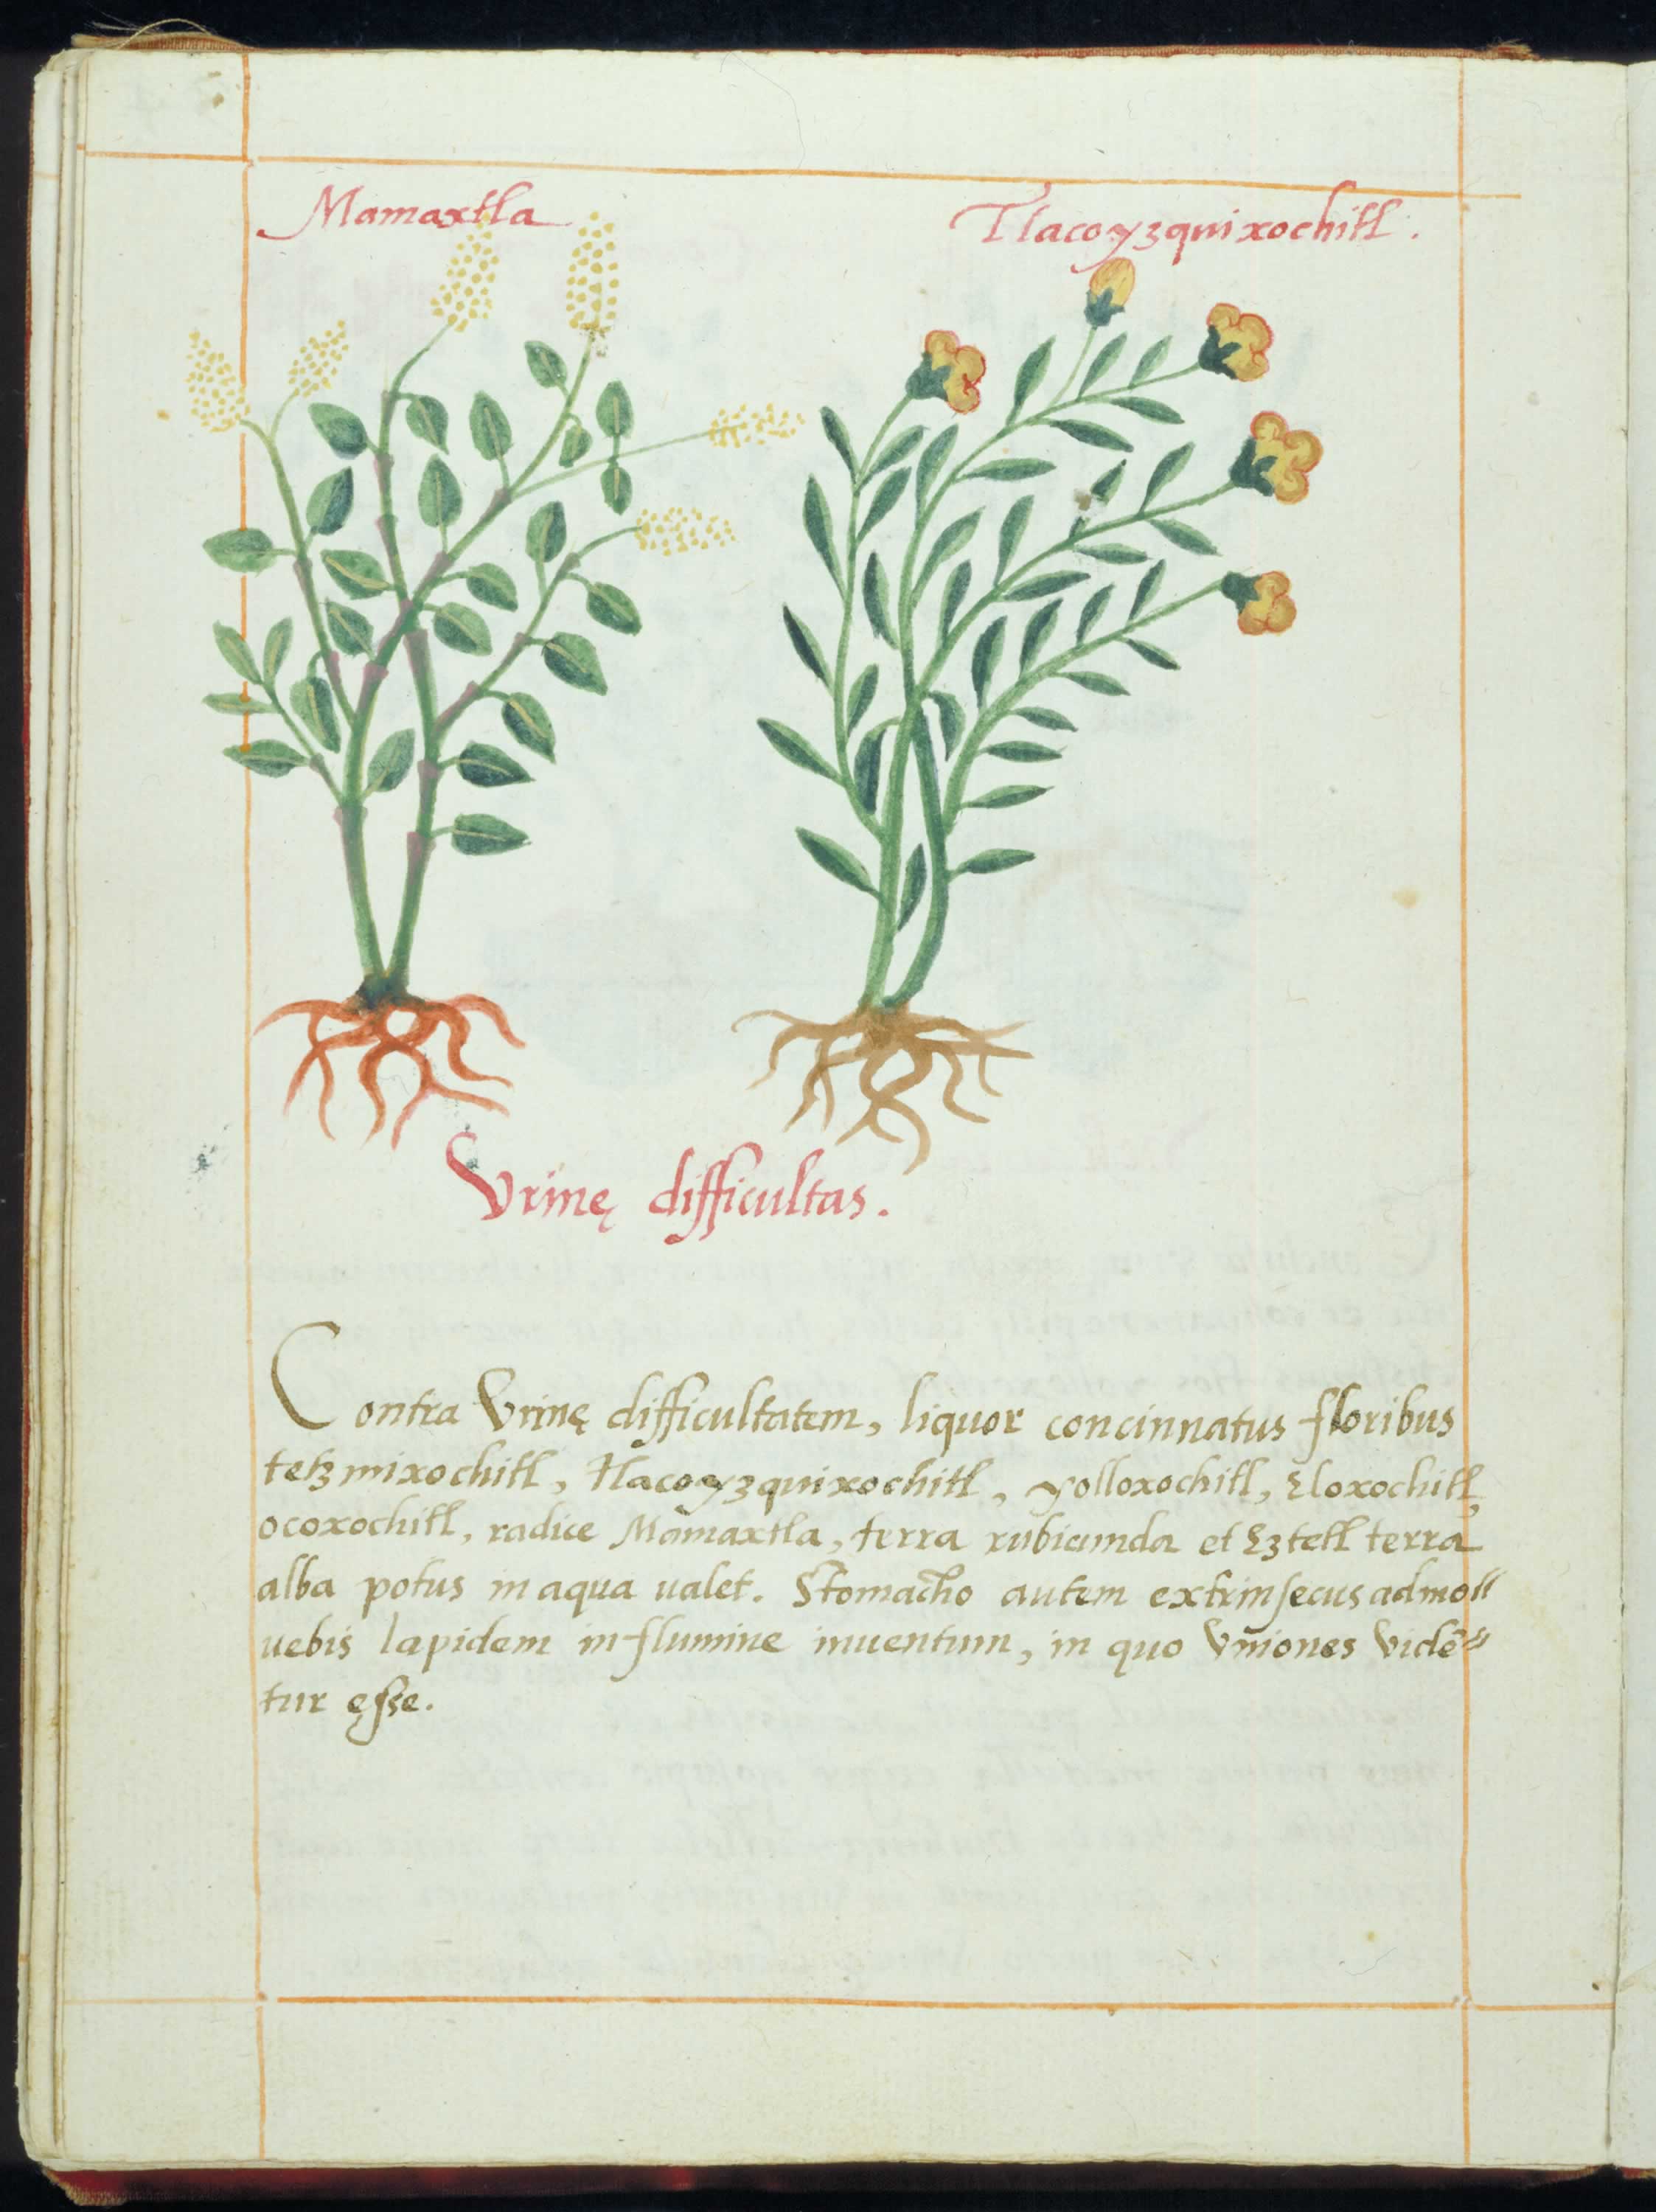 Mamaxtla
Tlacoyzquixochitl.
Vrinę difficultas.
Contra Vrinę difficultatem, liquor concinnatus floribus
tetzmixochitl, tlacoyzquixochitl, yolloxochitl, Eloxochitl,
ocoxochitl, radice Mamaxtla, terra rubicunda et Eztetl terra
alba potus in aqua ualet. Stomacho autem extrinsecus admo〃
uebis lapidem in flumine inuentum, in quo Vniones Vidē〃
tur ęsse.